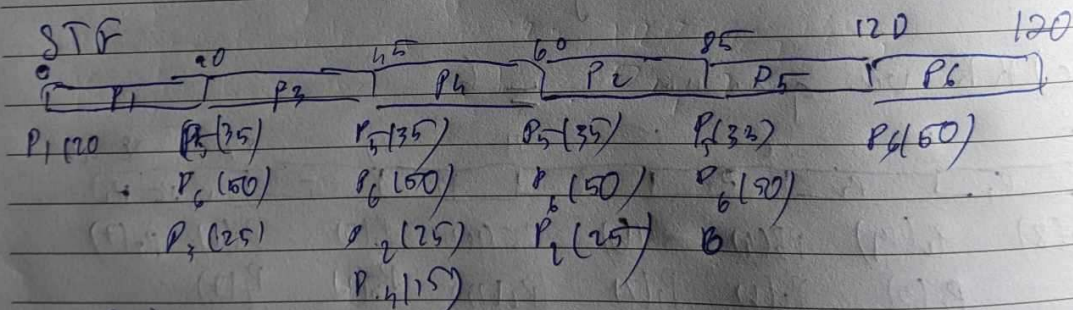 STF
0 20 45 60 85 120 120
P1 P3 P4 P2 P5 P6
P1(20 P5(35) P5(35) P5(35) P5(33) P6(50)
P6(50) P6(50) P6(50) P6(50)
P3(25) P2(25) P2(25) B
P4(15)